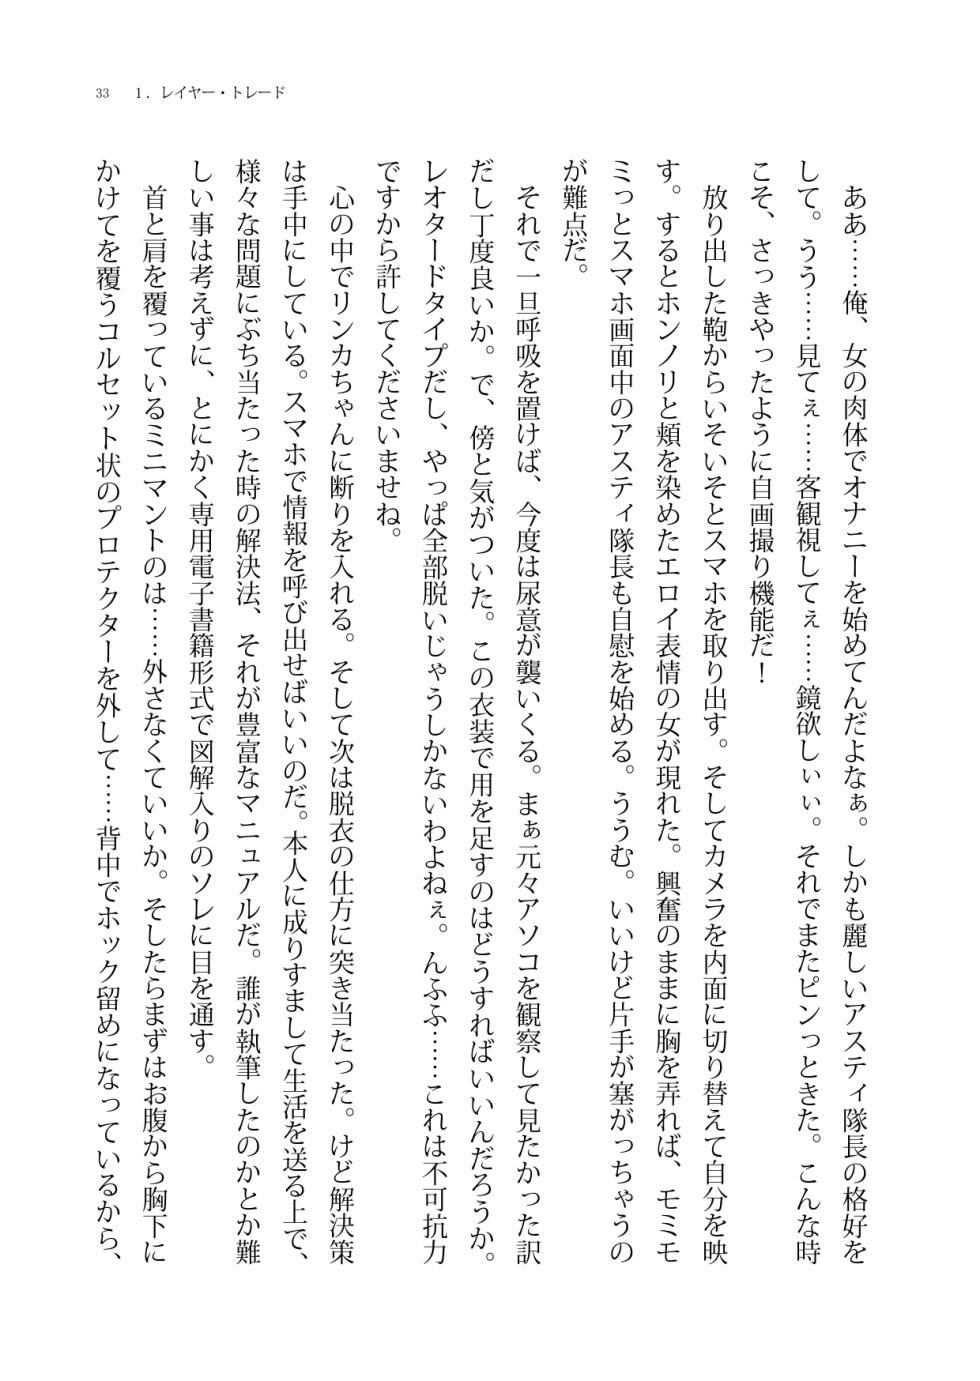 33　1．レイヤー・トレード
　ああ……俺、女の肉体でオナニーを始めてんだよなぁ。しかも麗しいアスティ隊長の格好を
して。うう……見てぇ……客観視してぇ……鏡欲しぃぃ。それでまたピンっときた。こんな時
こそ、さっきやったように自画撮り機能だ！
　放り出した鞄からいそいそとスマホを取り出す。そしてカメラを内面に切り替えて自分を映
す。するとホンノリと頬を染めたエロイ表情の女が現れた。興奮のままに胸を弄れば、モミモ
ミっとスマホ画面中のアスティ隊長も自慰を始める。ううむ。いいけど片手が塞がっちゃうの
が難点だ。
　それで一旦呼吸を置けば、今度は尿意が襲いくる。まぁ元々アソコを観察して見たかった訳
だし丁度良いか。で、傍と気がついた。この衣装で用を足すのはどうすればいいんだろうか。
レオタードタイプだし、やっぱ全部脱いじゃうしかないわよねぇ。んふふ……これは不可抗力
ですから許してくださいませね。
　心の中でリンカちゃんに断りを入れる。そして次は脱衣の仕方に突き当たった。けど解決策
は手中にしている。スマホで情報を呼び出せばいいのだ。本人に成りすまして生活を送る上で、
様々な問題にぶち当たった時の解決法、それが豊富なマニュアルだ。誰が執筆したのかとか難
しい事は考えずに、とにかく専用電子書籍形式で図解入りのソレに目を通す。
　首と肩を覆っているミニマントのは……外さなくていいか。そしたらまずはお腹から胸下に
かけてを覆うコルセット状のプロテクターを外して……背中でホック留めになっているから、